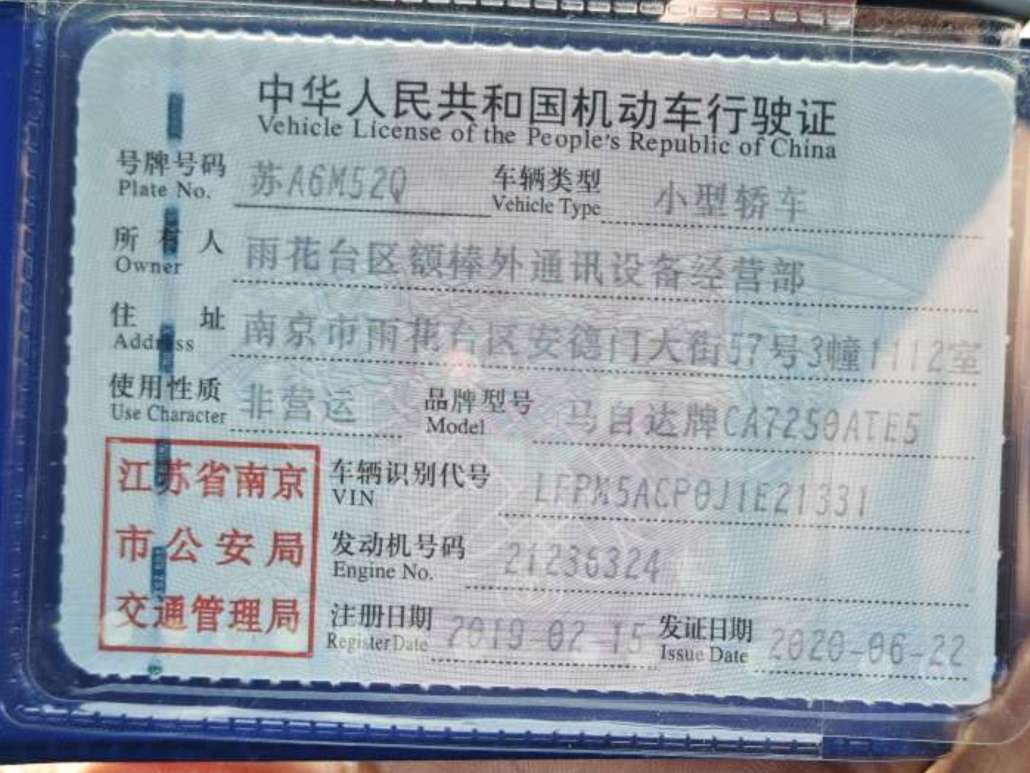 中华人民共和国机动车行驶证
Vehicle License of the People's Republic of China
号牌号码 苏A6M52Q 车辆类型 小型轿车
Plate No. Vehicle Type
所有人 雨花台区额棒外通讯设备经营部
Owner
住址 南京市雨花台区安德门大街57号3幢1112室
Address
使用性质 非营运 品牌型号 马自达牌CA7250ATE5
Use Character Model
江苏省南京
市公安局
交通管理局
车辆识别代号 LFPM5ACP0J1E21331
VIN
发动机号码 21236324
Engine No.
注册日期 2019-02-15 发证日期 2020-06-22
Register Date Issue Date